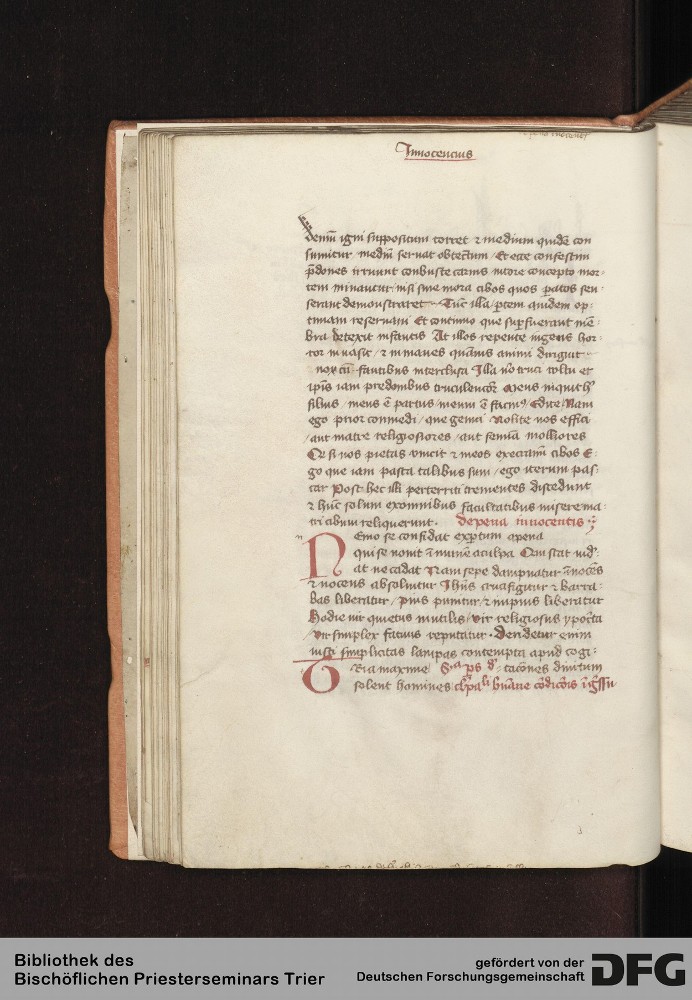 Innocencius
demū igni suppositum torret ⁊ medium quidē con
sumitur mediū seruat obtectum / Et ecce confestim
p̄dones irruunt conbuste carnis nitore concepto mor-
tem minantur / nisi sine mora cibos quos paratos sen-
serant demonstraret Tūc illa / partem quidem op-
timam reseruaui Et continuo que superfuerant mē-
bra detexit infantis At illos repente ingens hor-
ror inuasit / ⁊ inmanes quamuis animi dirigiut
vox cū faucibus interclusa Illa vero truci vultu et
ipsis iam predonibus truculencior Meus inquit hic
filius / meus ē partus / meum ē facinus / Edite / Nam
ego prior comedi / que genui Nolite vos effici
/ aut matre religiosiores / aut femina molliores
Qr si vos pietas vincit ⁊ meos execramini cibos E-
go que iam pasta talibus sum / ego iterum pas-
car Post hec illi perterriti trementes discedunt
⁊ hunc solum ex omnibus facultatibus misere ma-
tri cibum reliquerunt. de pena innocentis
Nemo se confidat expertum a pena
qui se nouit immunem a culpa Qui stat vid-
at ne cadat Nam sepe dampnatur innocēs
⁊ nocens absoluitur Ihūs crucifigitur ⁊ barra-
bas liberatur / pius punitur / ⁊ impius liberatur
Hodie vir quietus inutilis / vir religiosus ypocrita
/ vir simplex fatuus reputatur. Deridetur enim
iusti simplicitas lampas contempta apud cogi-
Tria maxime tacōnes diuitum
solent homines
Bibliothek des
Bischöflichen Priesterseminars Trier
gefördert von der
Deutschen Forschungsgemeinschaft
DFG